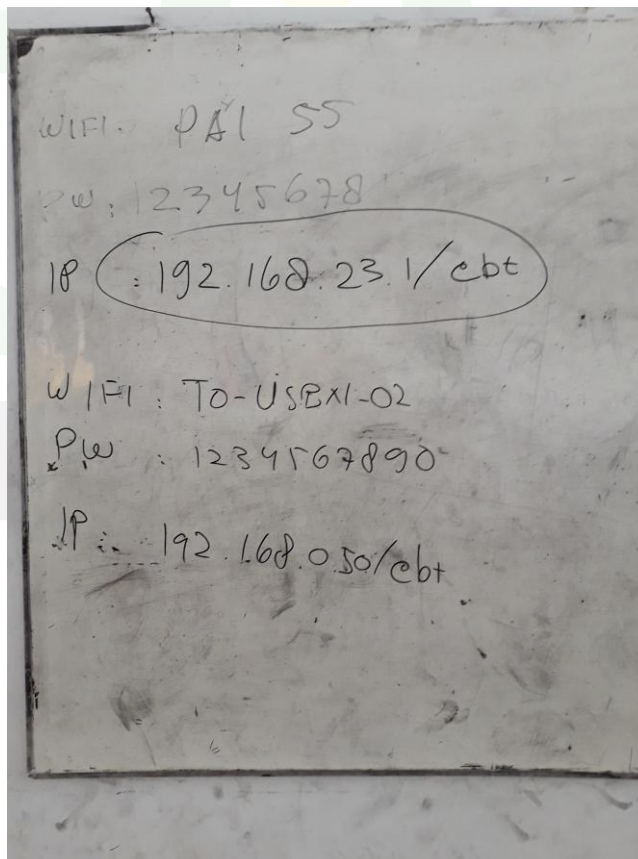 WIFI. PAI 55
PW: 12345678
IP : 192.168.23.1/cbt
WIFI : TO-USBXI-02
PW : 1234567890
IP : 192.168.0.50/cbt